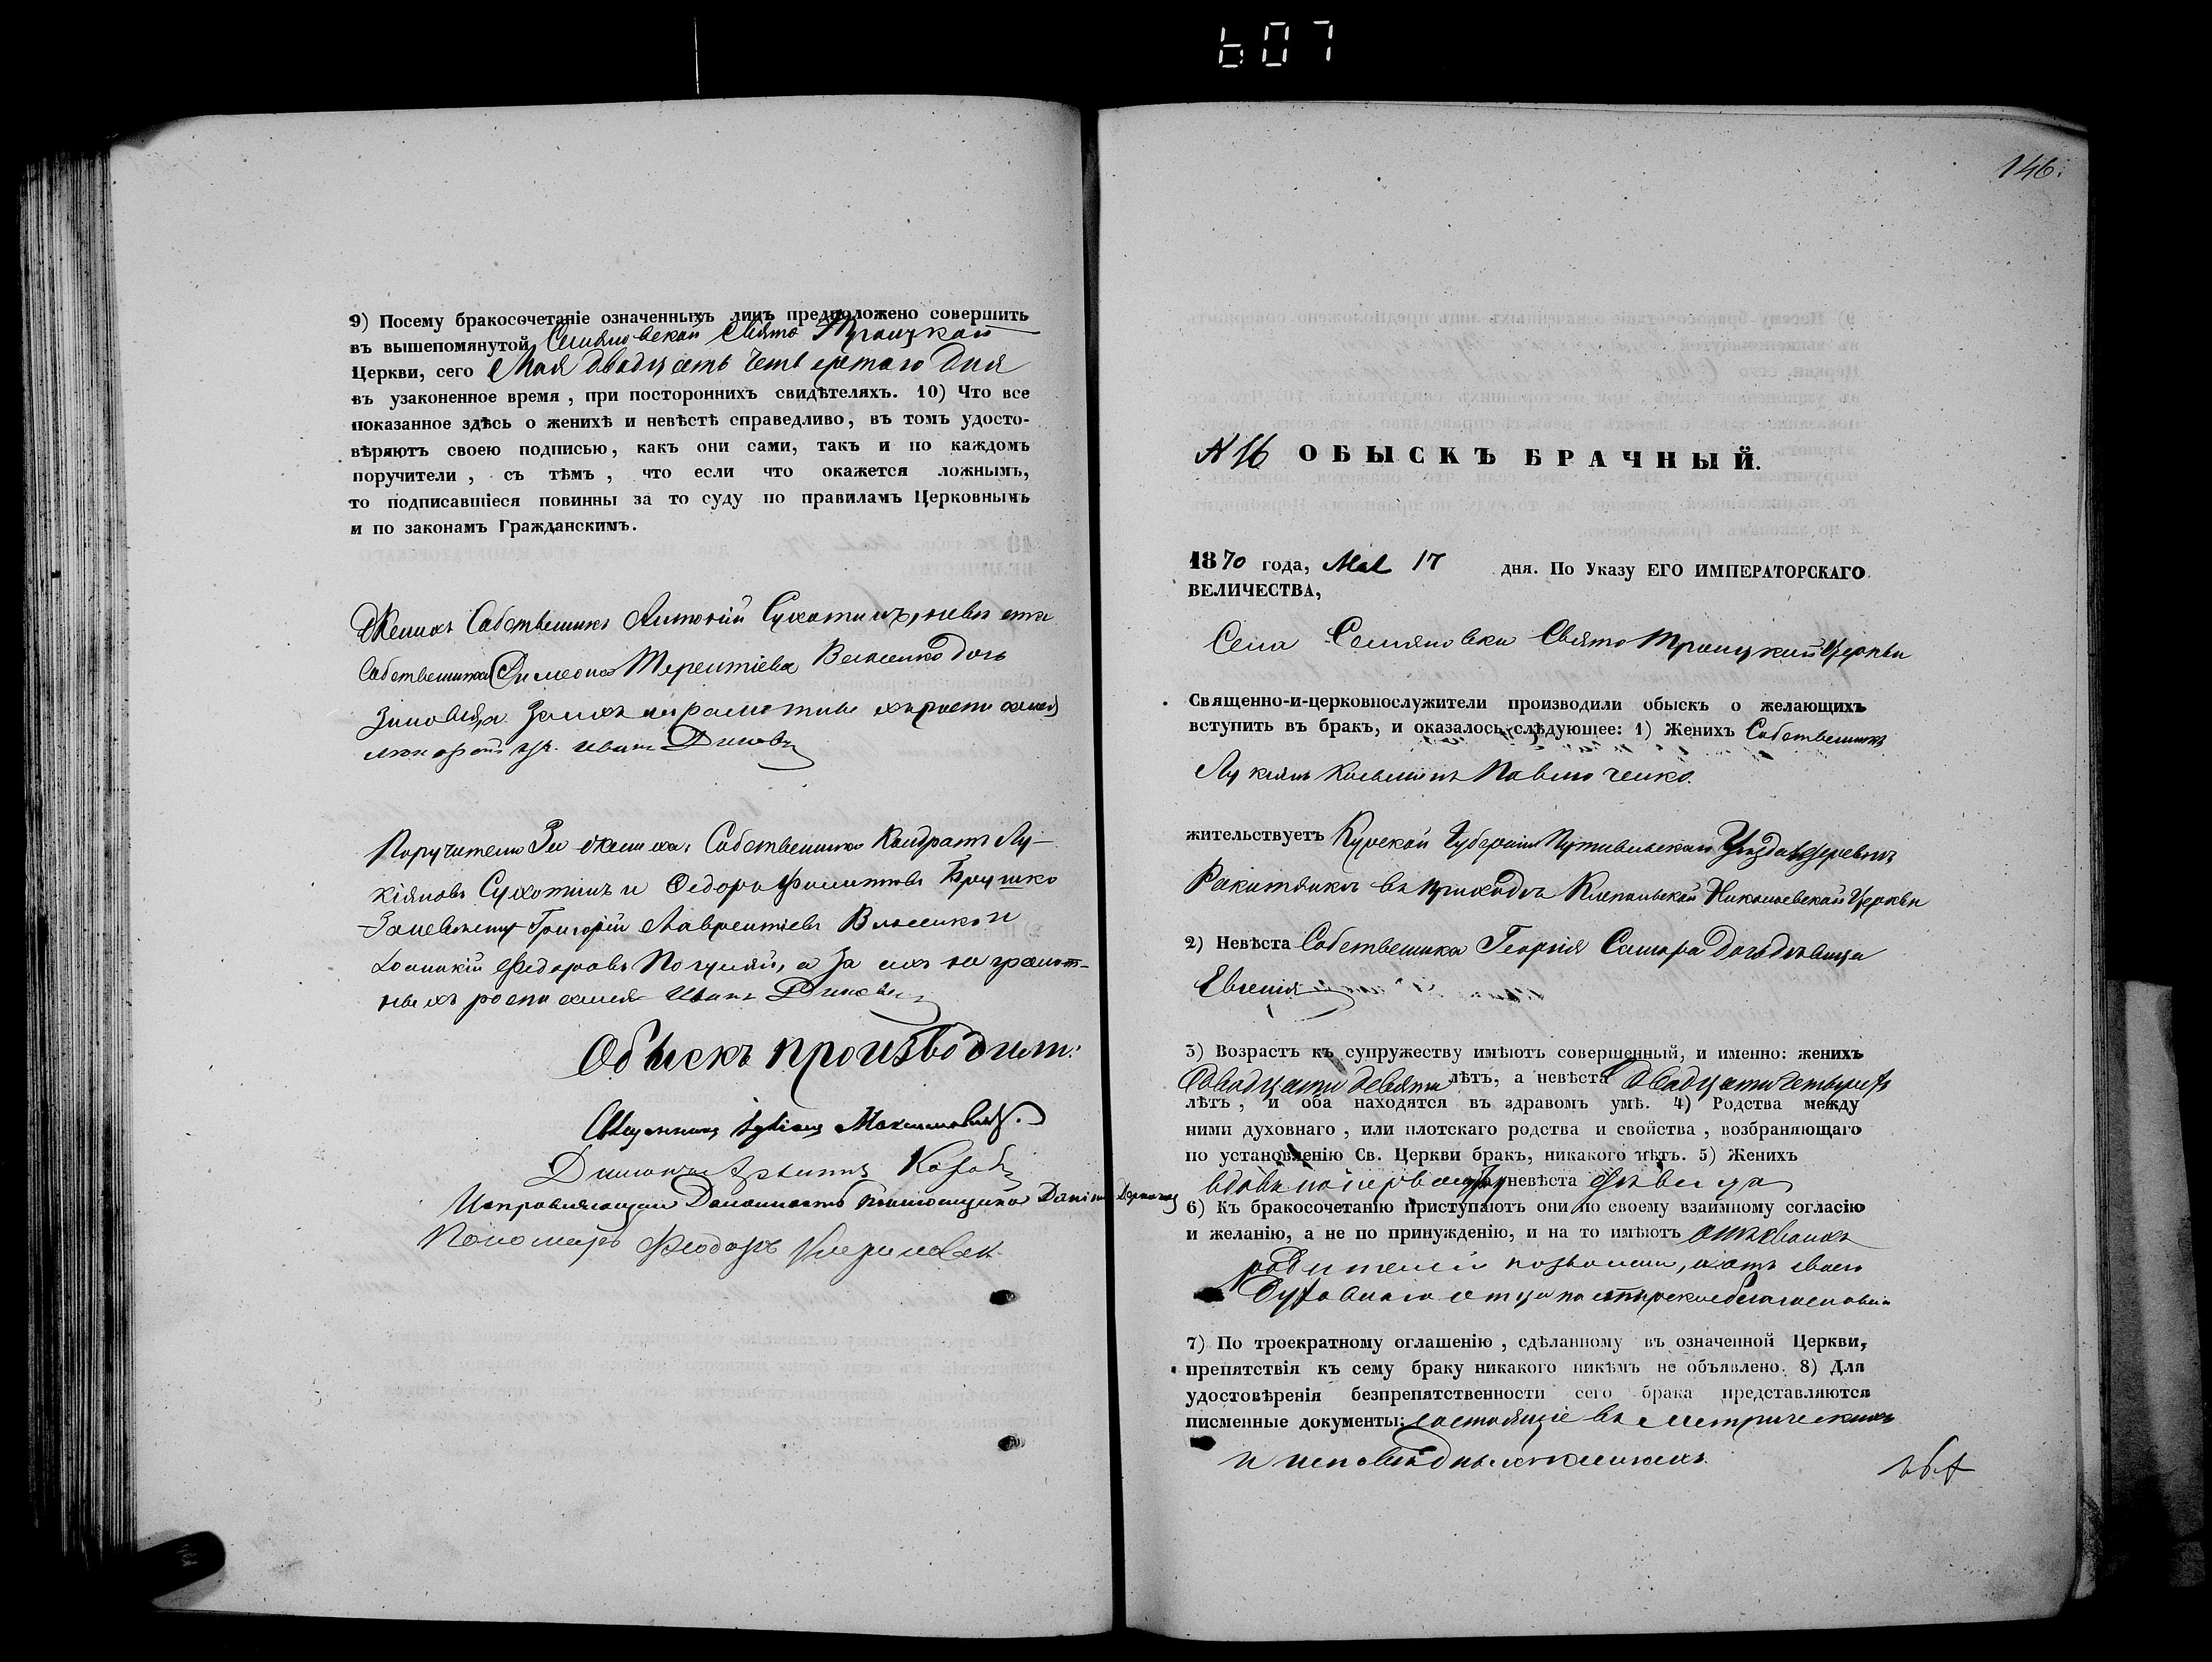 607
9) Посему бракосочетаніе означенныхъ лицъ предположено совершить
въ вышепомянутой Семяновской Свято Троицкой
Церкви, сего Мая двадцать четвертаго дня
въ узаконенное время, при постороннихъ свидѣтеляхъ. 10) Что все
показанное здѣсь о женихѣ и невѣстѣ справедливо, въ томъ удосто-
вѣряютъ своею подписью, какъ они сами, такъ и по каждомъ
поручители, съ тѣмъ, что если что окажется ложнымъ,
то подписавшіеся повинны за то суду по правиламъ Церковнымъ
и по законамъ Гражданскимъ.
Женихъ Собственникъ Антоній Сухотинъ, невѣста
Собственника Симеона Терентіева дочь
Зиновія, а за ихъ неграмотные
Иванъ
Поручители За жениха: Собственники Кондратъ Лу-
кіяновъ Сухотинъ и Федоръ
За невѣсту Григорій Лаврентіевъ и
Іоаникій Федоровъ а за ихъ не грамот-
ныхъ росписался Иванъ
Обыскъ производили:
Священникъ Максимовичъ.
Исправляющій Должность
Пономарь Феодоръ
146.
N 16 ОБЫСКЪ БРАЧНЫЙ.
1870 года, Мая 17 дня. По Указу ЕГО ИМПЕРАТОРСКАГО
ВЕЛИЧЕСТВА,
Села Семяновки Свято Троицкой Церкви
Священно-и-церковнослужители производили обыскъ о желающихъ
вступить въ бракъ, и оказалось слѣдующее: 1) Женихъ Собственникъ
Лукіянъ Павлюченко.
жительствуетъ Курской Губерніи Путивльскаго Уѣзда въ деревнѣ
Ракитянкѣ въ приходѣ Николаевской Церкви
2) Невѣста Собственника Георгія Самора дочь дѣвица
Евгенія
3) Возрастъ къ супружеству имѣютъ совершенный, и именно: женихъ
двадцати девяти лѣтъ, а невѣста двадцати четырехъ
лѣтъ, и оба находятся въ здравомъ умѣ. 4) Родства между
ними духовнаго, или плотскаго родства и свойства, возбраняющаго
по установленію Св. Церкви бракъ, никакого нѣтъ. 5) Женихъ
вдовъ по первому браку невѣста дѣвица
6) Къ бракосочетанію приступаютъ они по своему взаимному согласію
и желанію, а не по принужденію, и на то имѣютъ отъ своихъ
родителей позволеніе, и отъ своего
духовнаго отца пастырское благословеніе
7) По троекратному оглашенію, сдѣланному въ означенной Церкви,
препятствія къ сему браку никакого никѣмъ не объявлено. 8) Для
удостовѣренія безпрепятственности сего брака представляются
писменные документы: состоящіе въ метрическихъ
и исповѣдныхъ книгахъ.